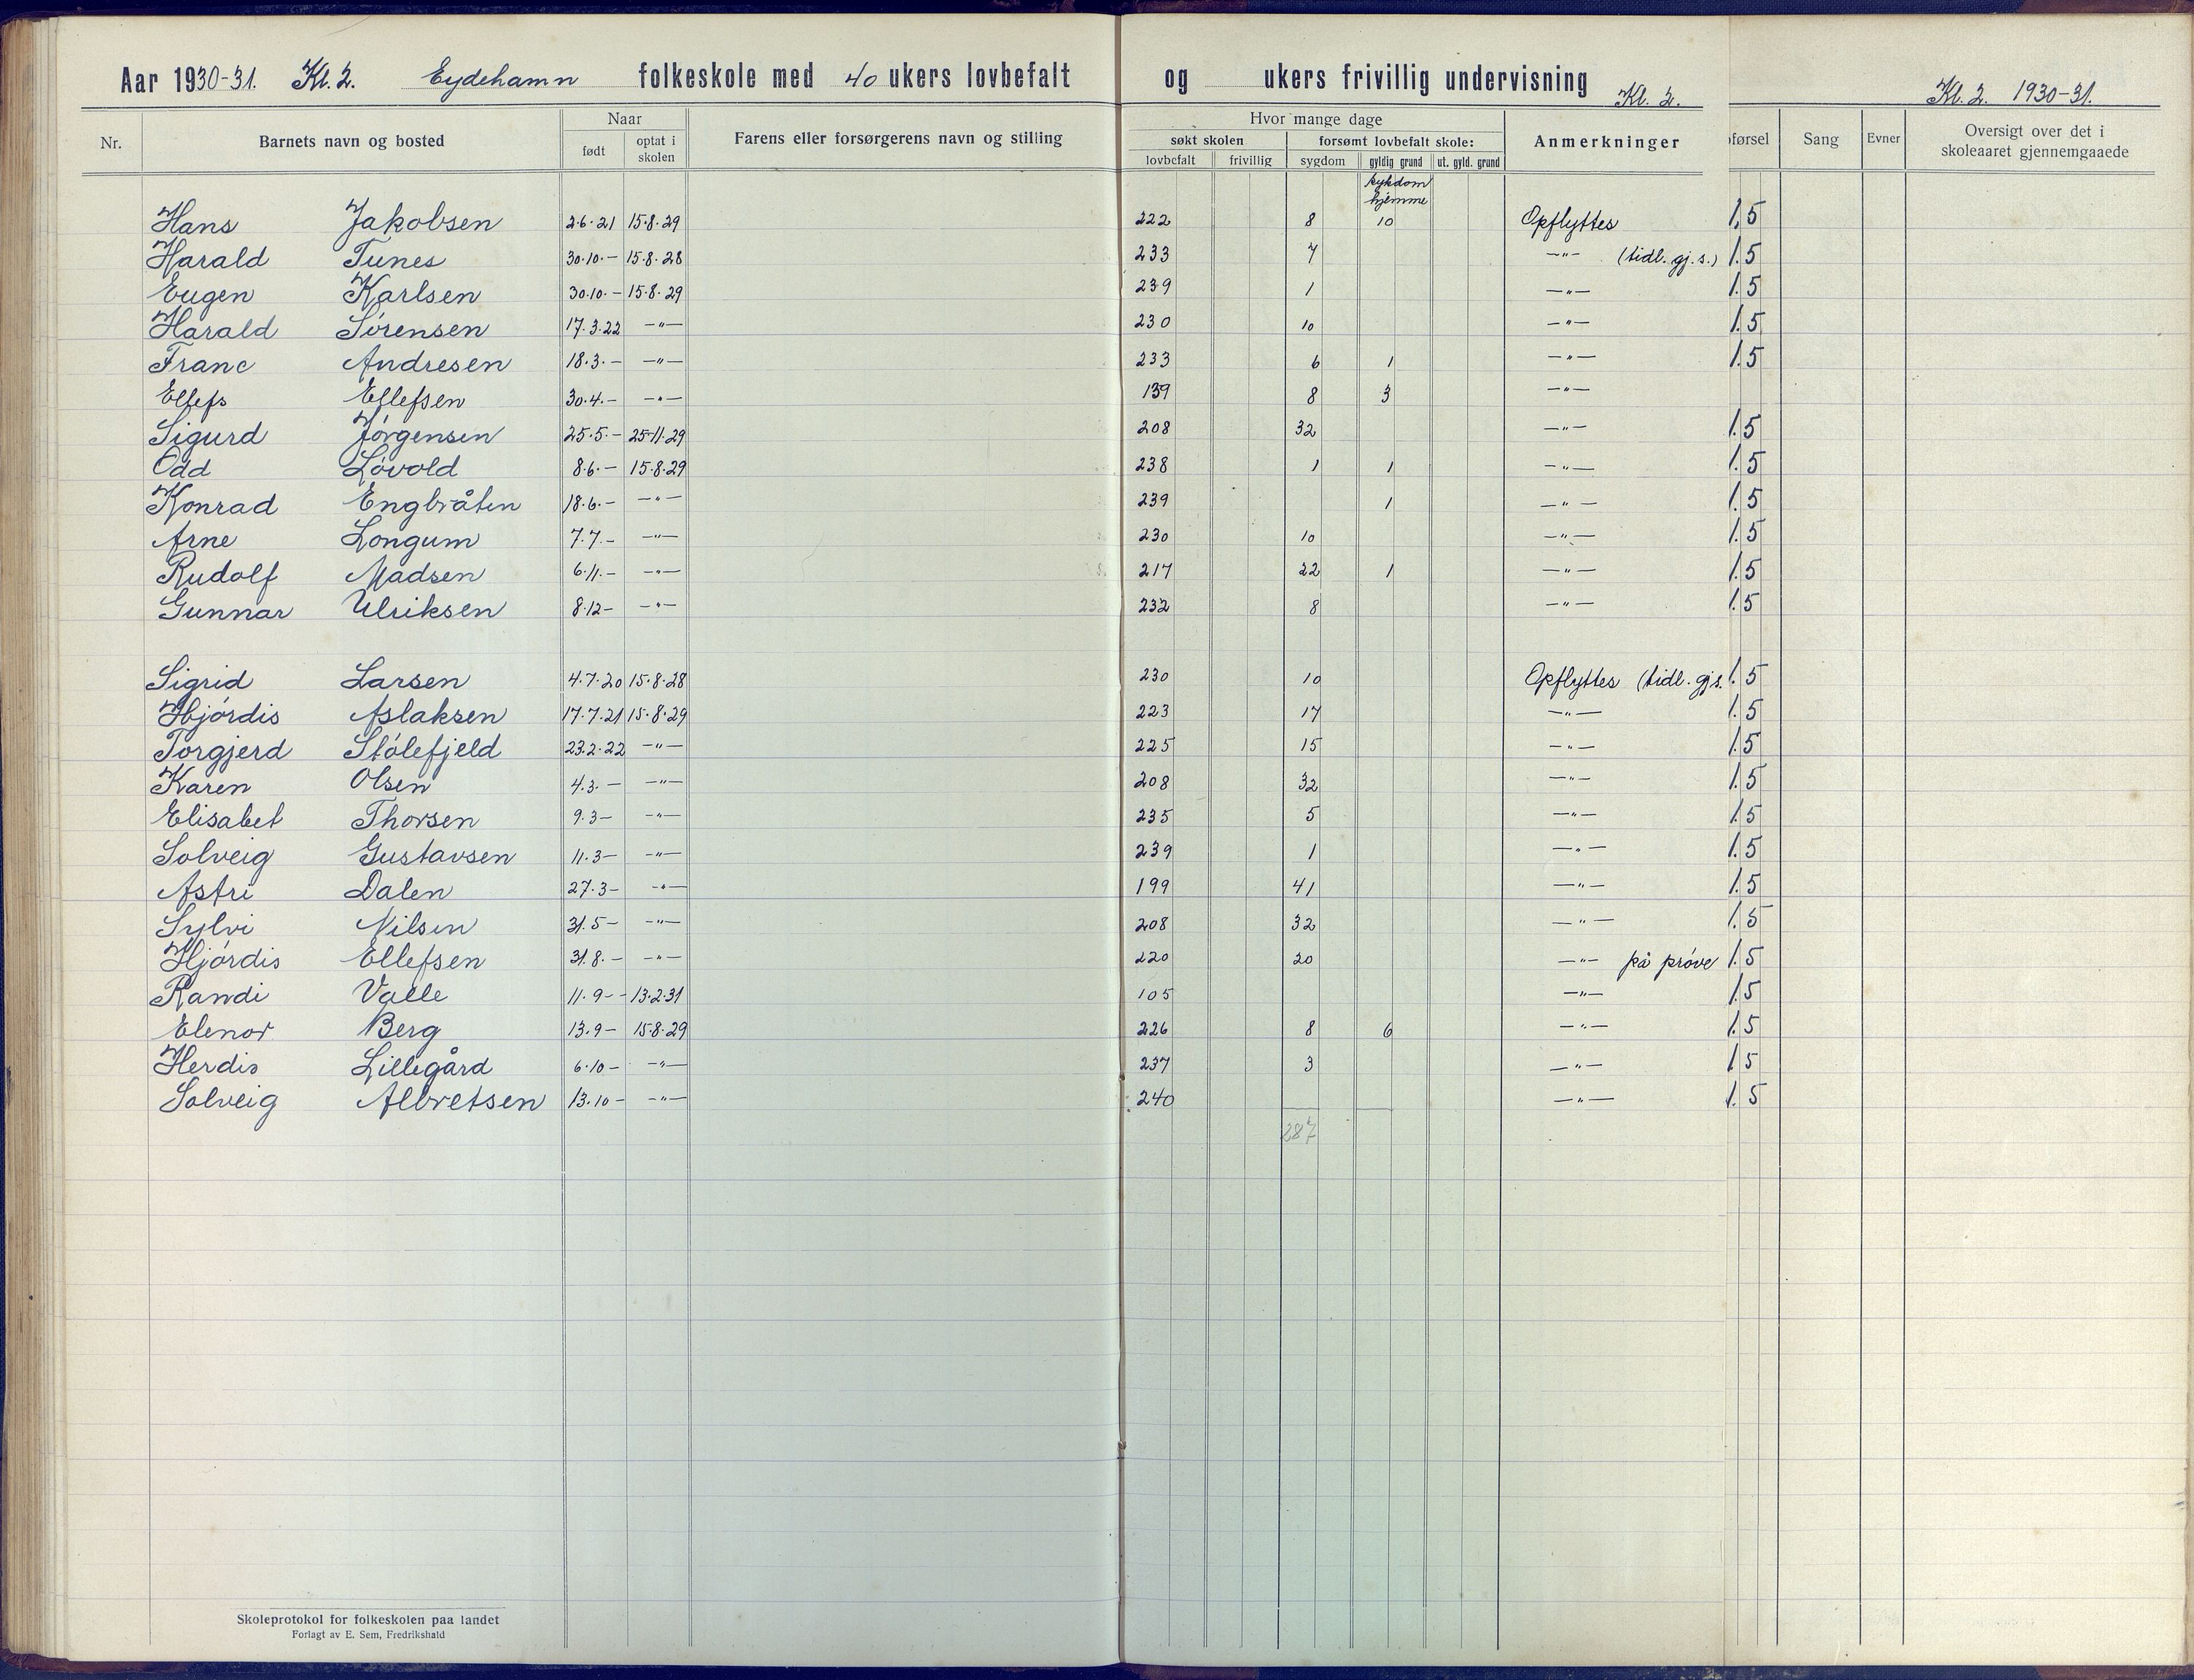 Aar 1930-31. Kl. 2. Eydehamn folkeskole med 40 ukers lovbefalt og ukers frivillig undervisning Kl. 2. Kl. 2. 1930-31.
Nr. Barnets navn og bosted Naar Farens eller forsørgerens navn og stilling Hvor mange dage Anmerkninger førsel Sang Evner Oversigt over det i skoleaaret gjennemgaaede
født optat i skolen søkt skolen forsømt lovbefalt skole:
lovbefalt frivillig sygdom gyldig grund ut. gyld. grund
sykdom
hjemme
Hans Jakobsen 2.6.21 15.8.29 222 8 10 Opflyttes 1,5
Harald Tunes 30.10.— 15.8.28 233 7 —"— (tidl. gj. s.) 1.5
Eugen Karlsen 30.10.— 15.8.29 239 1 —"— 1.5
Harald Sørensen 17.3.22 —"— 230 10 —"— 1.5
Franc Andresen 18.3.— —"— 233 6 1 —"— 1.5
Ellefs Ellefsen 30.4.— —"— 139 8 3 —"—
Sigurd Jørgensen 25.5.— 25.11.29 208 32 —"— 1.5
Odd Løvold 8.6.— 15.8.29 238 1 1 —"— 1.5
Konrad Engbråten 18.6.— —"— 239 1 —"— 1.5
Arne Longum 7.7.— —"— 230 10 —"— 1.5
Rudolf Madsen 6.11.— —"— 217 22 1 —"— 1.5
Gunnar Ulriksen 8.12— —"— 232 8 —"— 1.5
Sigrid Larsen 4.7.20 15.8.28 230 10 Opflyttes (tidl. gj s. 1.5
Hjørdis Aslaksen 17.7.21 15.8.29 223 17 —"— 1.5
Torgjerd Stølefjeld 23.2.22 —"— 225 15 —"— 1.5
Karen Olsen 4.3.— —"— 208 32 —"— 1.5
Elisabet Thorsen 9.3— —"— 235 5 —"— 1.5
Solveig Gustavsen 11.3— —"— 239 1 —"— 1.5
Astri Dalen 27.3— —"— 199 41 —"— 1.5
Sylvi Nilsen 31.5— —"— 208 32 —"— 1.5
Hjørdis Ellefsen 31.8.— —"— 220 20 —"— på prøve 1.5
Randi Valle 11.9— 13.2.31 105 —"— 1.5
Elenor Berg 13.9— 15.8.29 226 8 6 —"— 1.5
Herdis Lillegård 6.10— —"— 237 3 —"— 1.5
Solveig Albretsen 13.10— —"— 240 —"— 1.5
287
Skoleprotokol for folkeskolen paa landet
Forlagt av E. Sem, Fredrikshald